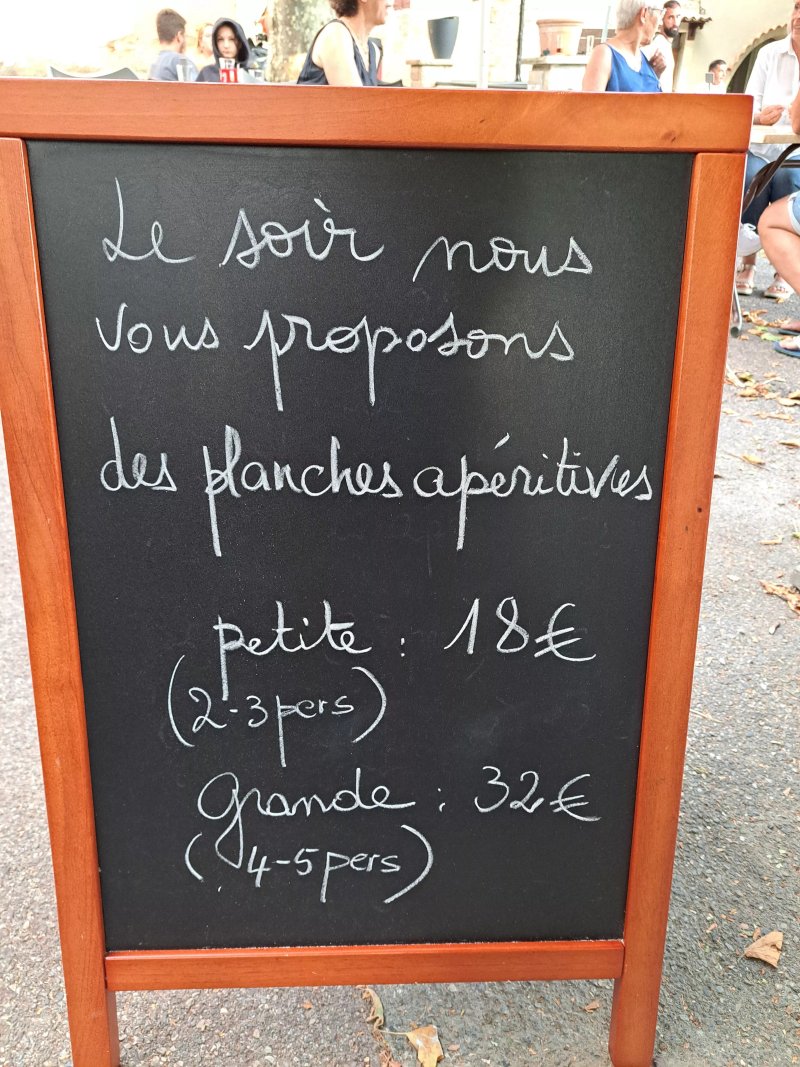 Le soir nous
vous proposons
des planches apéritives
petite : 18€
(2-3pers)
grande : 32€
(4-5pers)